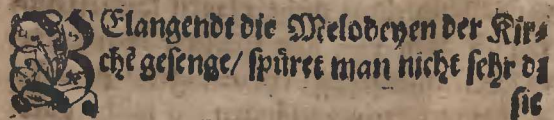 BElangendt die Melodeyen der Kir⸗
chẽ gesenge/ spüret man nicht sehr dz
sie